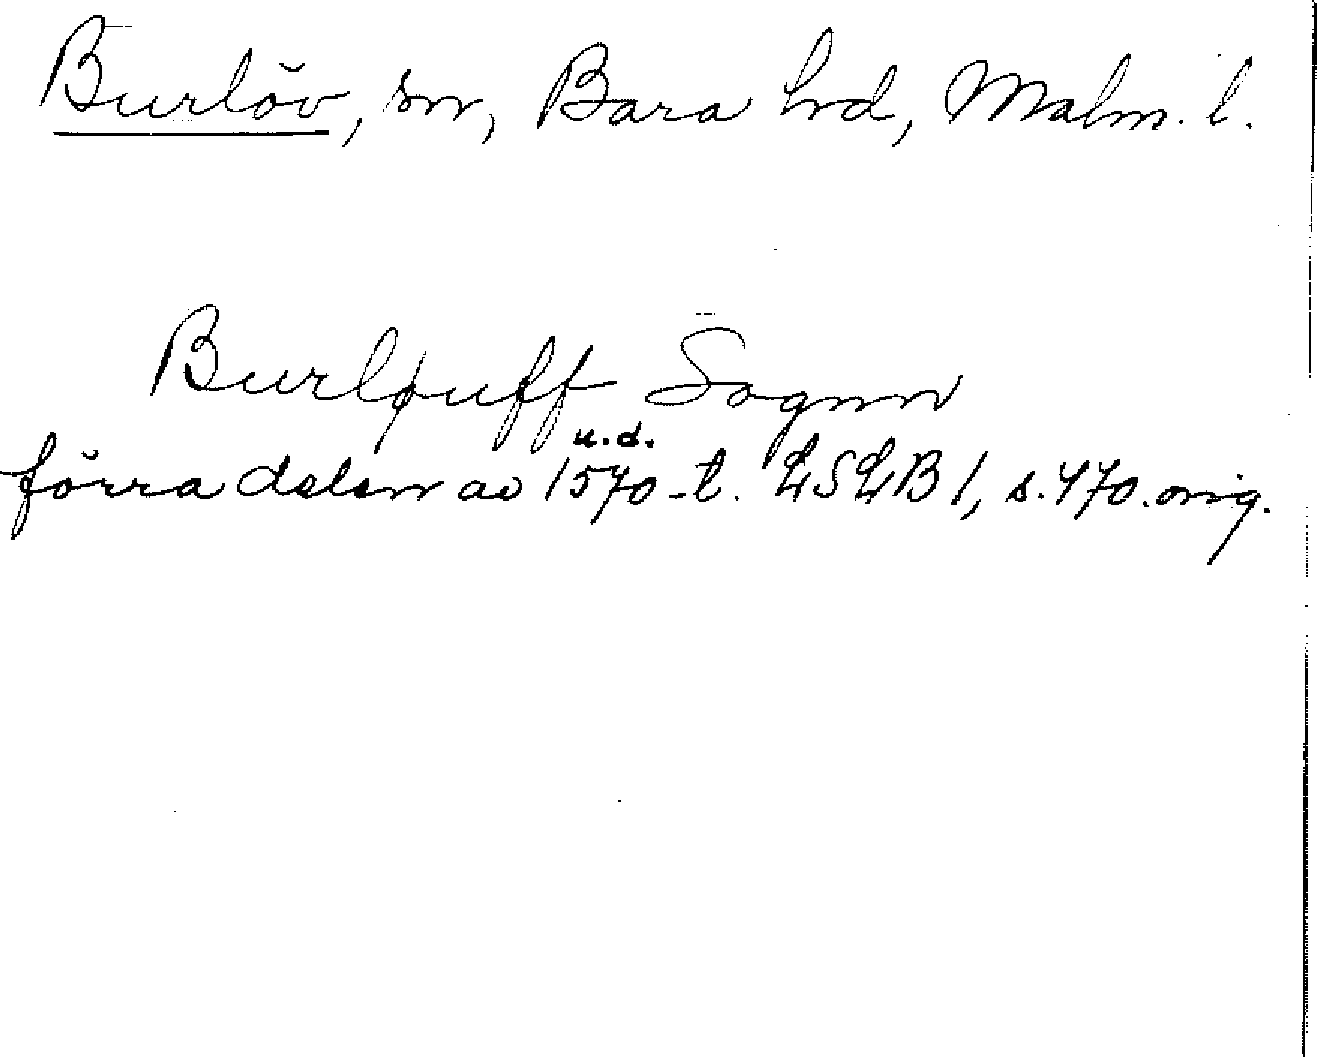 Burlöv, sn, Bara hd, Malm. l.
Burløuff Sognn
u.d.
förra delen av 1570-t. LSLB 1, s. 470. orig.